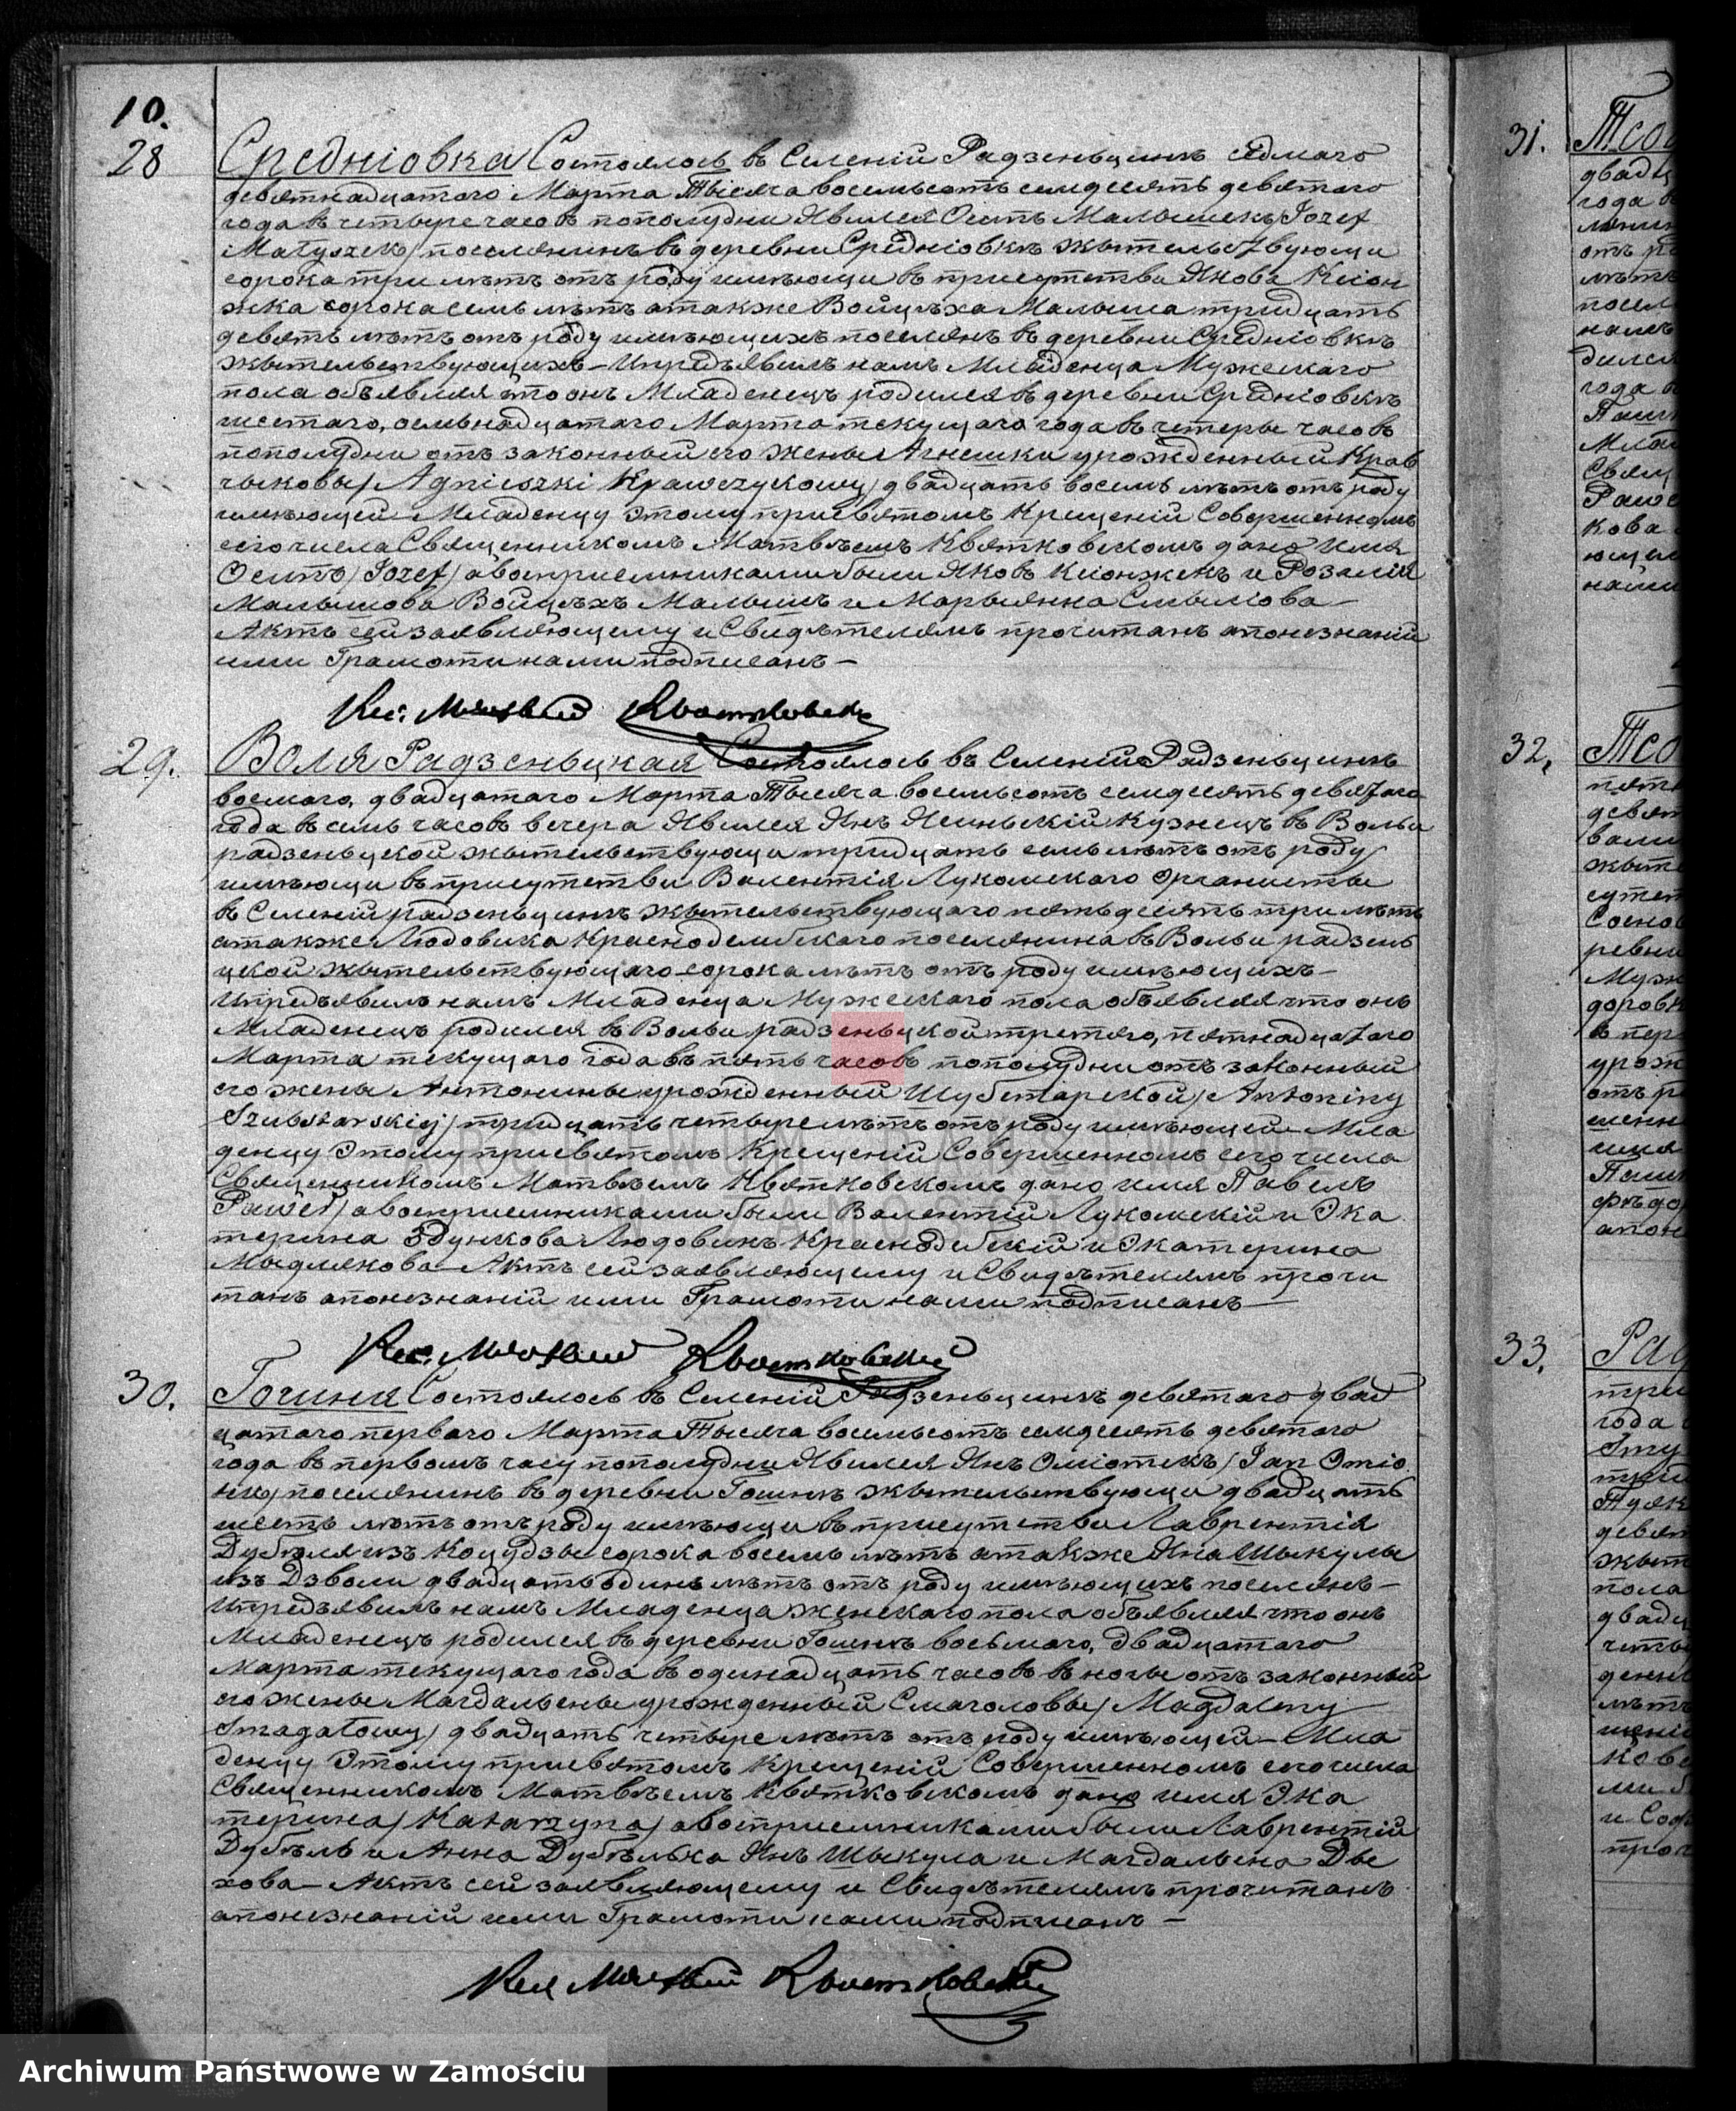 10.
28
Средніовка Состоялось въ Селеній Радзенцинъ седмаго
девятнадцатаго Марта Тысяча восемьсотъ семдесятъ девятаго
года въ четыре часовъ пополудни Явился Осипъ Малышекъ /Jozef
Małyszek/ поселянинъ въ деревни Средніовкъ жытельствующи
сорока три лѣтъ отъ роду имѣющи въ присутствіи Якова Ксіон
жка сорока семь лѣтъ атакже Войцѣха Малыша тридцать
девять лѣтъ отъ роду имѣющихъ поселянъ въ деревни Средніовкъ
жытельствующихъ – Ипредъявилъ намъ Младенца Мужескаго
пола объявляя что онъ Младенецъ родился въ деревни Средніовкъ
шестаго, семьнадцатаго Марта текущаго года въ четыре часовъ
пополудни отъ законный его жены Агнешки урожденный Крав
чыковы /Agnieszki Krawczykowy/ двадцать восемь лѣтъ отъ роду
имѣющей – Младенцу этому присвятомъ Крещеній Совершенномъ
сего числа Священникомъ Матвѣемъ Квятковскомъ дано имя
Осипъ /Jozef/ авоспріемниками были Яковъ Ксіонжекъ и Розалія
Малышова Войцѣхъ Малышъ и Марьянна Смылова –
Актъ сей заявляющему и Свидѣтелямъ прочитанъ апонезнаній
ими Грамоти нами подписанъ –
Кс. Матвей Квятковски
29.
Воля Радзеньцкая Состоялось въ Селеній Радзеньцинъ
восмаго, двадцатаго Марта Тысяча восемьсотъ семдесятъ девятаго
года въ семь часовъ вечера Явился Янъ Ясиньскій Кузнецъ въ Вольи
радзеньцкой жытельствующи тридцать семь лѣтъ отъ роду
имѣющи въ присутствіи Валентія Лукомскаго Органисты
въ Селеній радзеньцинъ жытельствующаго пятьдесятъ три лѣтъ
атакже Людовика Краснодембскаго поселянина въ Вольи радзень
цкой жытельствующаго сорока лѣтъ отъ роду имѣющихъ –
Ипредъявилъ намъ Младенца Мужескаго пола объявляя что онъ
Младенецъ родился въ Вольи радзеньцкой третяго, пятнадцатаго
Марта текущаго года въ пять часовъ пополудни отъ законный
его жены Антонины урожденный Шубстарской /Antoniny
Szubstarskiej/ тридцать четыре лѣтъ отъ роду имѣющей – Мла
денцу Этому присвятомъ Крещеній Совершенномъ сего числа
Священникомъ Матвѣемъ Квятковскомъ дано имя Павелъ
Paweł/ авоспріемниками были Валентій Лукомскій и Эка
терина Здункова Людовикъ Краснодебскій и Экатерина
Мыдлякова – Актъ сей заявляющему и Свидѣтелямъ прочи
танъ апонезнаній ими Грамоти нами подписанъ –
Кс. Матвей Квятковскій
30.
Гошня Состоялось въ Селеній Радзеньцинъ девятаго двад
цатаго перваго Марта Тысяча восемьсотъ семдесятъ девятаго
года въ первомъ часу пополудни Явился Янъ Оміотекъ /Jan Omio
tek/ поселянинъ въ деревни Гошнъ жытельствующи двадцать
шесть лѣтъ отъ роду имѣющи въ присутствіи Лаврентія
Дубѣля изъ Коцудзы сорока восемь лѣтъ атакже Яна Шыкулы
изъ Дзволи двадцать одинъ лѣтъ отъ роду имѣющихъ поселянъ –
Ипредъявилъ намъ Младенца женскаго пола объявляя что онъ
Младенецъ родился въ деревни Гошнъ восьмаго, двадцатаго
Марта текущаго года въ одинадцать часовъ въ ночы отъ законный
его жены Магдальены урожденный Смаголовы /Magdaleny
Smagałowy/ двадцать четыре лѣтъ отъ роду имѣющей – Мла
денцу Этому присвятомъ Крещеній Совершенномъ сего числа
Священникомъ Матвѣемъ Квятковскомъ дано имя Эка
терина /Katarzyna/ авоспріемниками были Лаврентій
Дубѣль и Анна Дубѣлька Янъ Шыкула и Магдальена Две
хова – Актъ сей заявляющему и Свидѣтелямъ прочитанъ
апонезнаній ими Грамоти нами подписанъ –
Кся Матвей Квятковскій
31.
двадц
года
32.
33.
Рад
три
года
Archiwum Państwowe w Zamościu